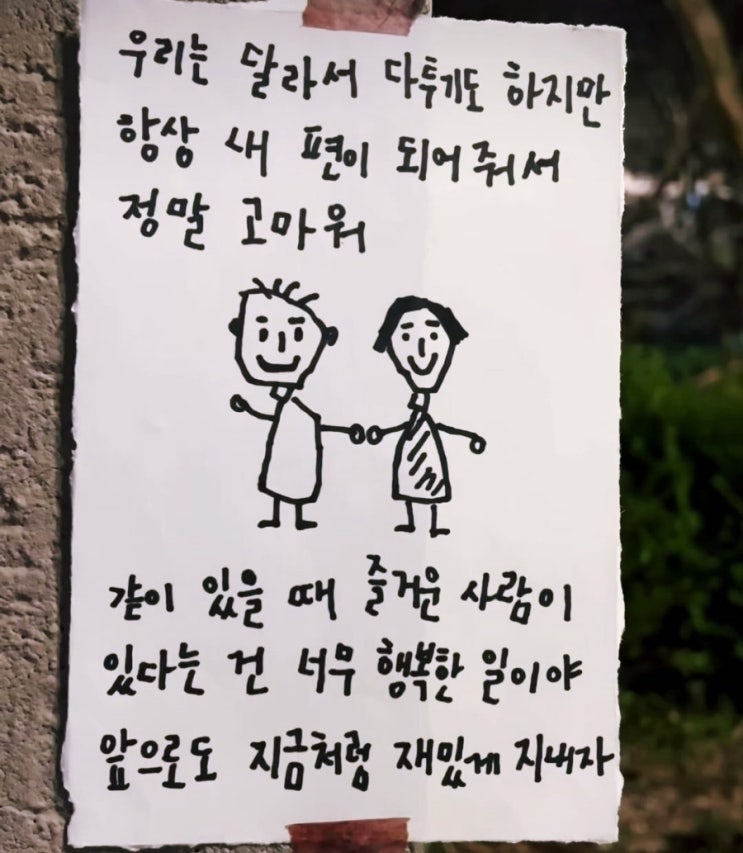 우리는 달라서 다투기도 하지만
항상 내 편이 되어줘서
정말 고마워
같이 있을 때 즐거운 사람이
있다는 건 너무 행복한 일이야
앞으로도 지금처럼 재밌게 지내자